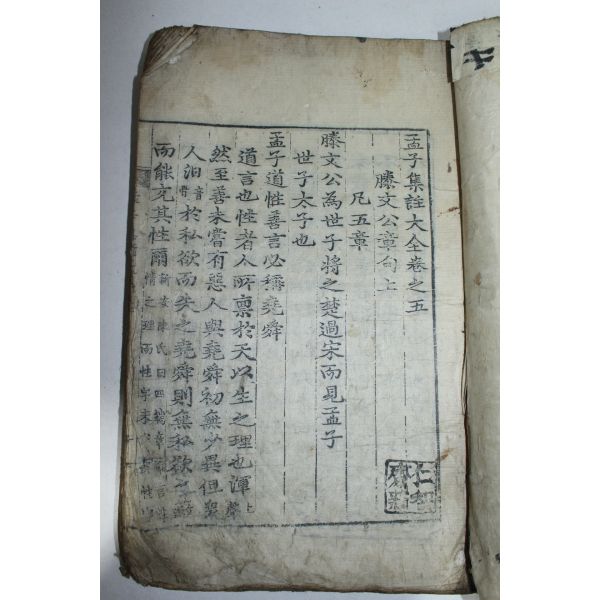 孟子集註大全卷之五
滕文公章句上
凡五章
滕文公為世子將之楚過宋而見孟子
世子太子也
孟子道性善言必稱堯舜
道言也性者人所禀於天以生之理也渾上聲
然至善未嘗有惡人與堯舜初無少異但衆
人汩音骨於私欲而失之堯舜則無私欲之蔽
而能充其性爾新安陳氏曰四端章言
情之理而性字未